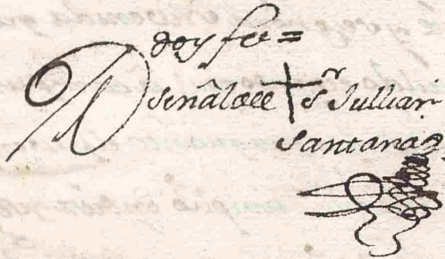 doy fee =
señal de el + Sr Jullian
Santana